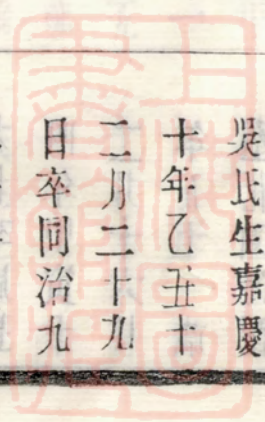 吳氏生嘉慶
十年乙丑十
二月二十九
日卒同治九